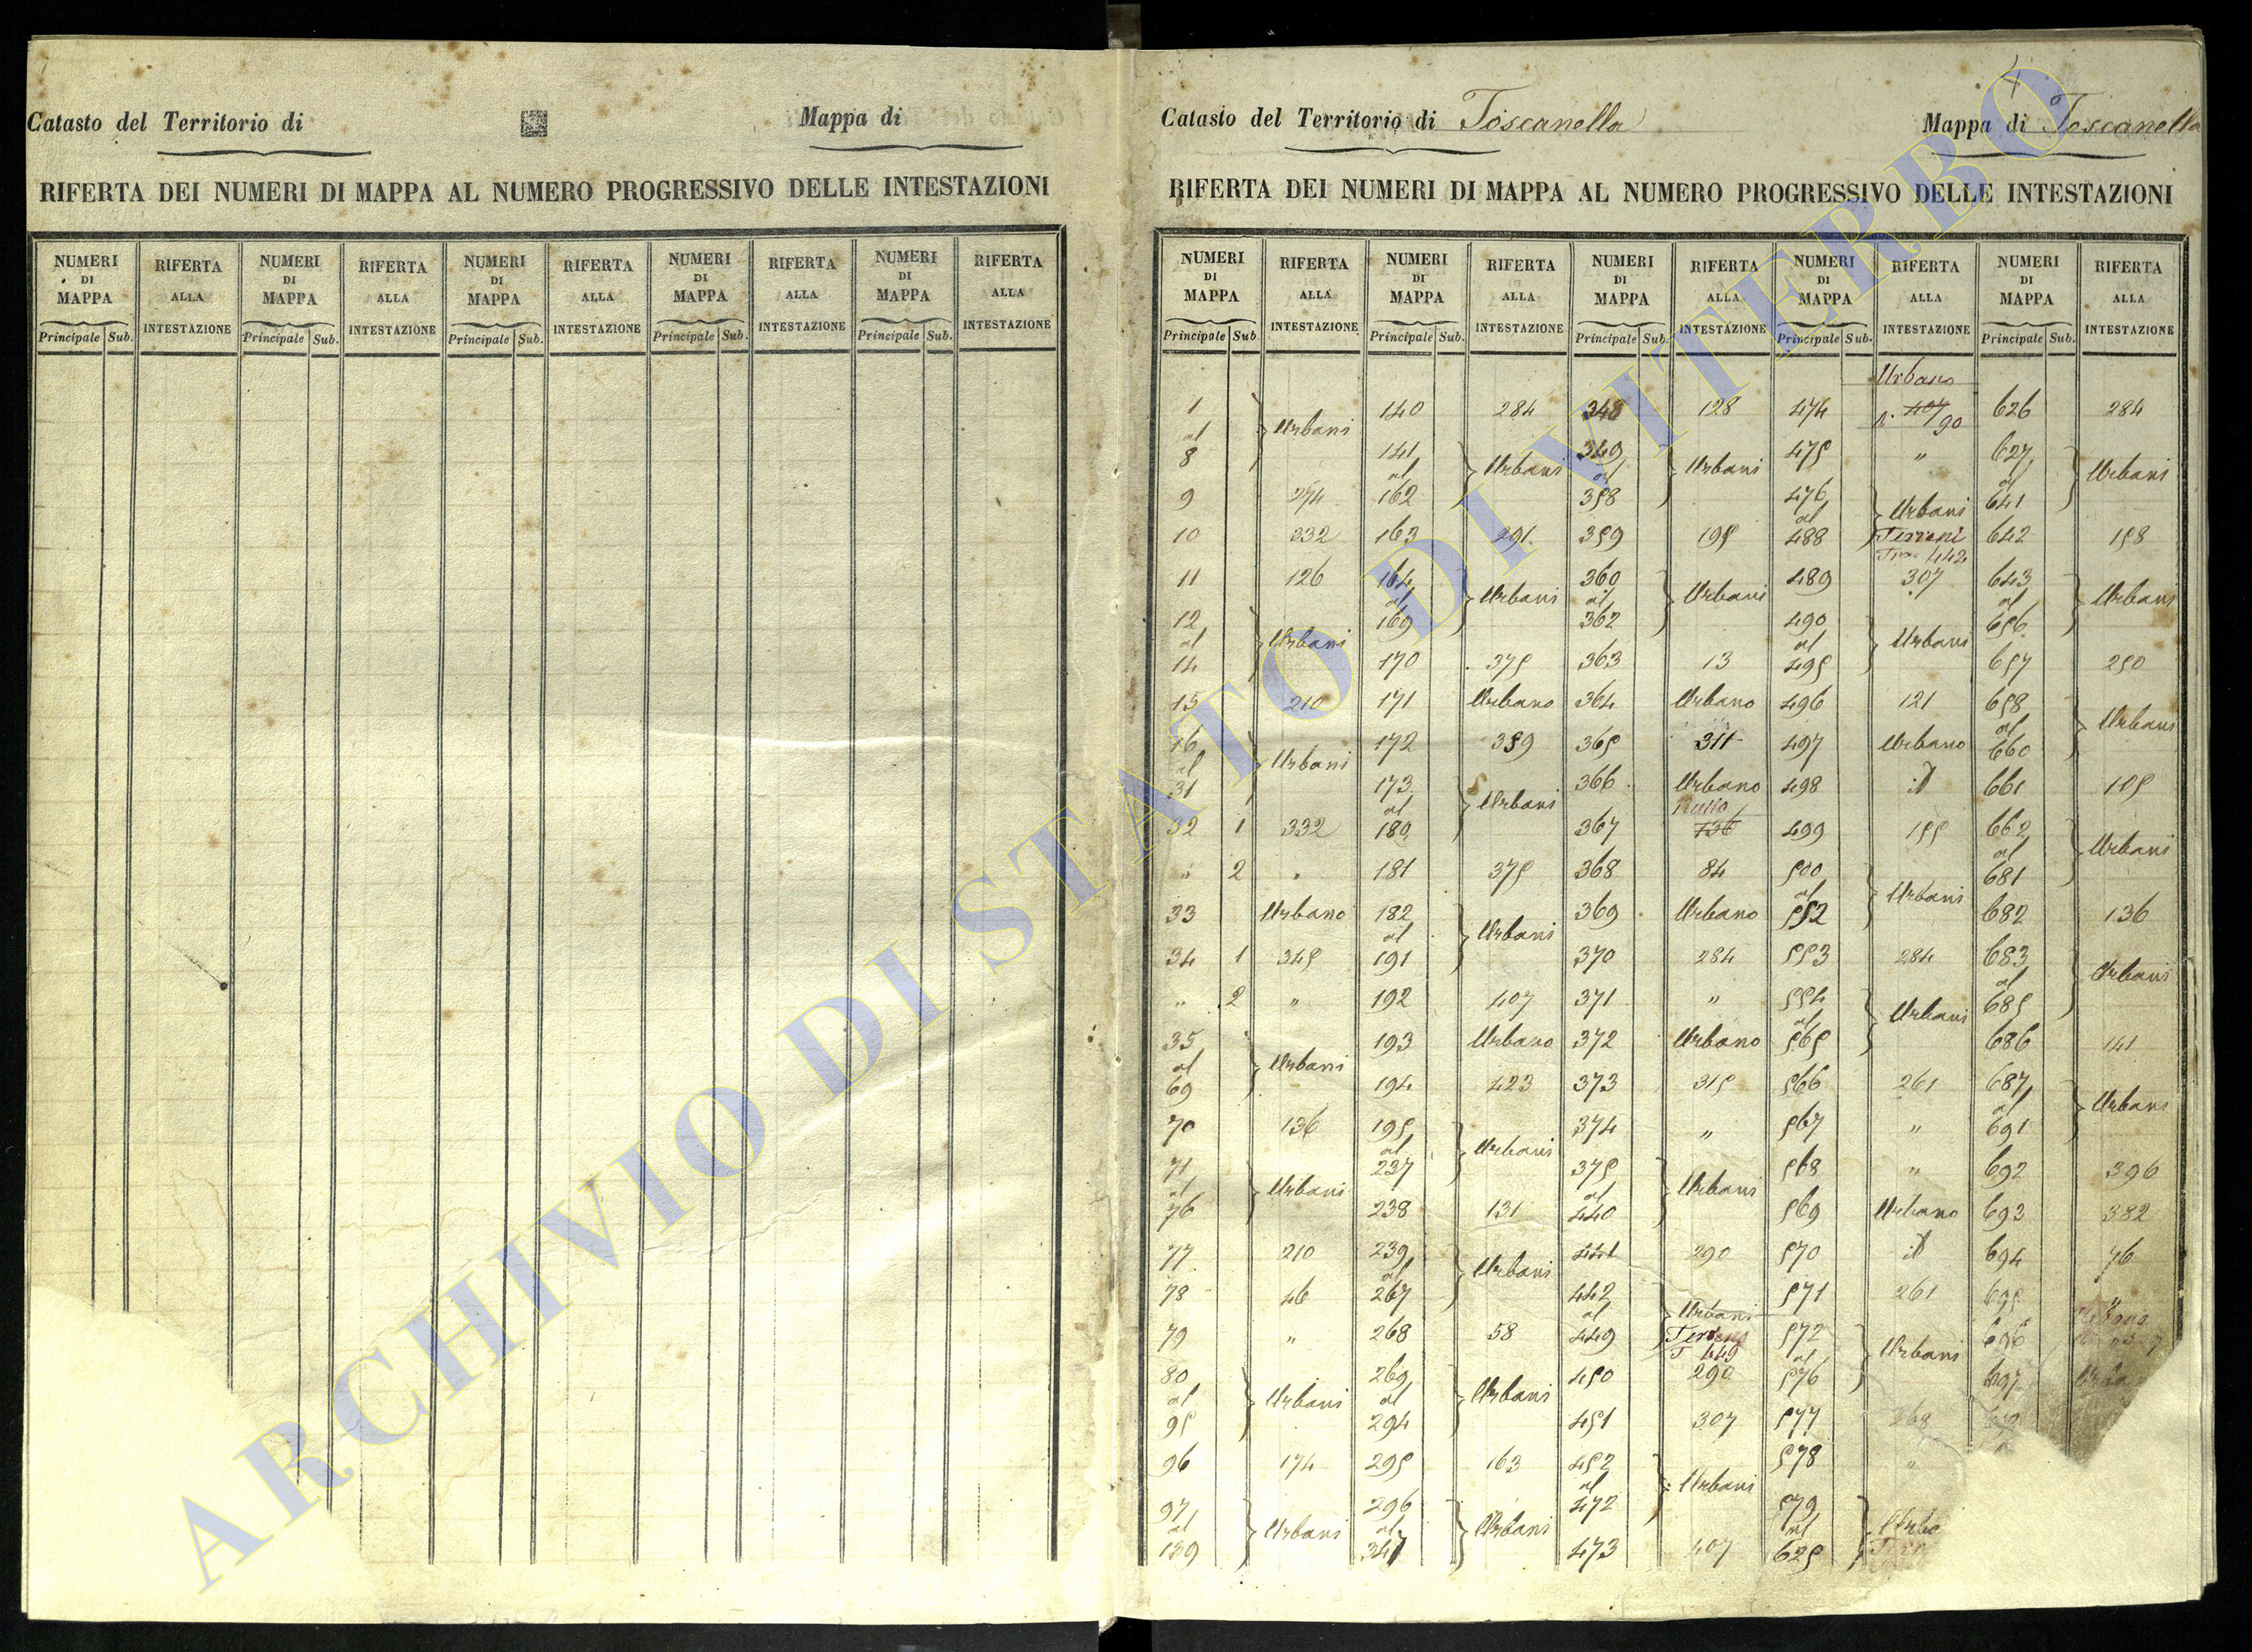 Catasto del Territorio di
Mappa di
RIFERTA DEI NUMERI DI MAPPA AL NUMERO PROGRESSIVO DELLE INTESTAZIONI
NUMERI DI MAPPA RIFERTA ALLA INTESTAZIONE NUMERI DI MAPPA RIFERTA ALLA INTESTAZIONE NUMERI DI MAPPA RIFERTA ALLA INTESTAZIONE NUMERI DI MAPPA RIFERTA ALLA INTESTAZIONE NUMERI DI MAPPA RIFERTA ALLA INTESTAZIONE
Principale Sub. Principale Sub. Principale Sub. Principale Sub. Principale Sub.
Catasto del Territorio di Toscanella
Mappa di Toscanella
RIFERTA DEI NUMERI DI MAPPA AL NUMERO PROGRESSIVO DELLE INTESTAZIONI
NUMERI DI MAPPA RIFERTA ALLA INTESTAZIONE NUMERI DI MAPPA RIFERTA ALLA INTESTAZIONE NUMERI DI MAPPA RIFERTA ALLA INTESTAZIONE NUMERI DI MAPPA RIFERTA ALLA INTESTAZIONE NUMERI DI MAPPA RIFERTA ALLA INTESTAZIONE
Principale Sub. Principale Sub. Principale Sub. Principale Sub. Principale Sub.
1 al 8 Urbani
9 274
10 232
11 126
12 al 14 Urbani
15 210
16 al 31 Urbani
32 1 332
" 2 "
33 Urbano
34 1 345
" 2 "
35 al 69 Urbani
70 136
71 al 76 Urbani
77 210
78 46
79 "
80 al 95 Urbani
96 174
97 al 139 Urbani
140 284
141 al 162 Urbani
163 291
164 al 169 Urbani
170 375
171 Urbano
172 359
173 al 180 Urbani
181 375
182 al 191 Urbani
192 407
193 Urbano
194 423
195 al 237 Urbani
238 131
239 al 267 Urbani
268 58
269 al 294 Urbani
295 163
296 al 347 Urbani
348 128
349 al 358 Urbani
359 195
360 al 362 Urbani
363 13
364 Urbano
365 311
366 Urbano
367 Nullo 136
368 84
369 Urbano
370 284
371 "
372 Urbano
373 315
374 "
375 al 440 Urbani
441 290
442 al 449 Urbani
T 449
450 290
451 307
452 al 472 Urbani
473 407
474 Urbano 407/90
475 "
476 al 488 Urbani Terreni
442
489 307
490 al 495 Urbani
496 121
497 Urbano
498 id
499 155
500 al 552 Urbani
553 284
554 al 565 Urbani
566 261
567 "
568 "
569 Urbano
570 id
571 261
572 al 576 Urbani
577 268
578 "
579 al 625
626 284
627 al 641 Urbani
642 158
643 al 656 Urbani
657 250
658 al 660 Urbani
661 105
662 al 681 Urbani
682 136
683 al 685 Urbani
686 141
687 al 691 Urbani
692 396
693 382
694 76
695 "
696
697
ARCHIVIO DI STATO DI VITERBO